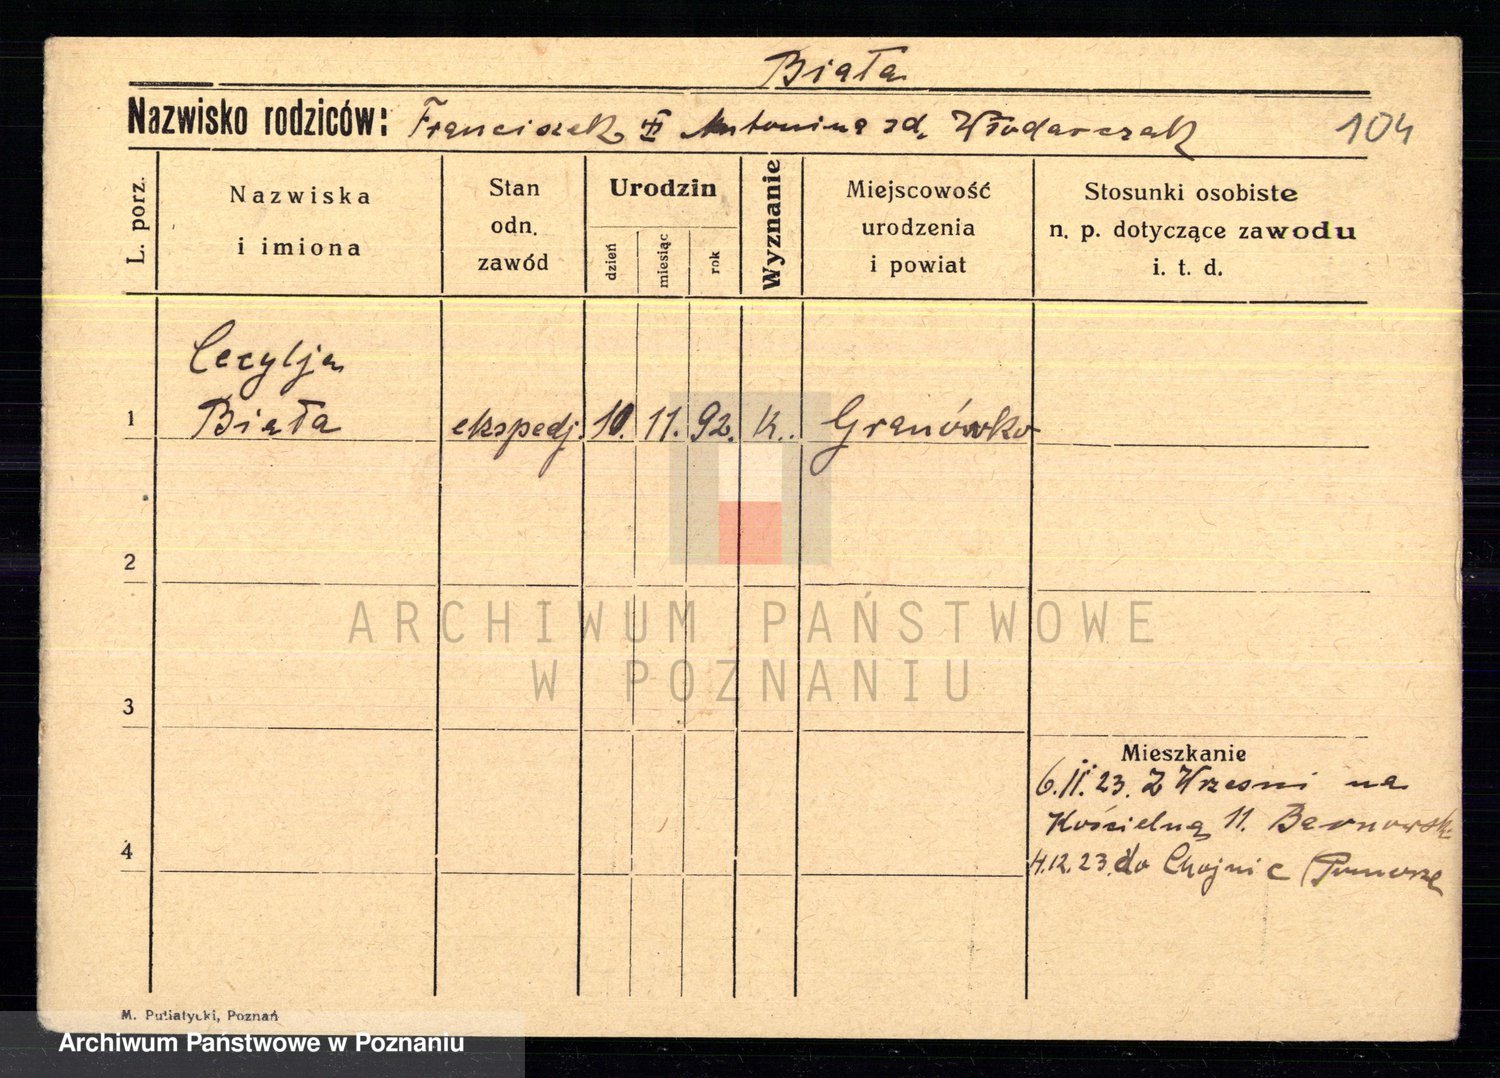 Biała
Nazwisko rodziców: Franciszek Antonina zd. Włodarczak 104
L. porz.
Nazwiska
i imiona
Stan
odn.
zawód
Urodzin
dzień
miesiąc
rok
Wyznanie
Miejscowość
urodzenia
i powiat
Stosunki osobiste
n. p. dotyczące zawodu
i. t. d.
Cecylja
1 Biała ekspedj. 10. 11. 92. K. Granówko
2
3
4
Mieszkanie
6.II.23. Z Wrzesni na
Kościelną 11.
4.12.23. do Chojnic (Pomorze
ARCHIWUM PAŃSTWOWE
W POZNANIU
M. Putiatycki, Poznań
Archiwum Państwowe w Poznaniu